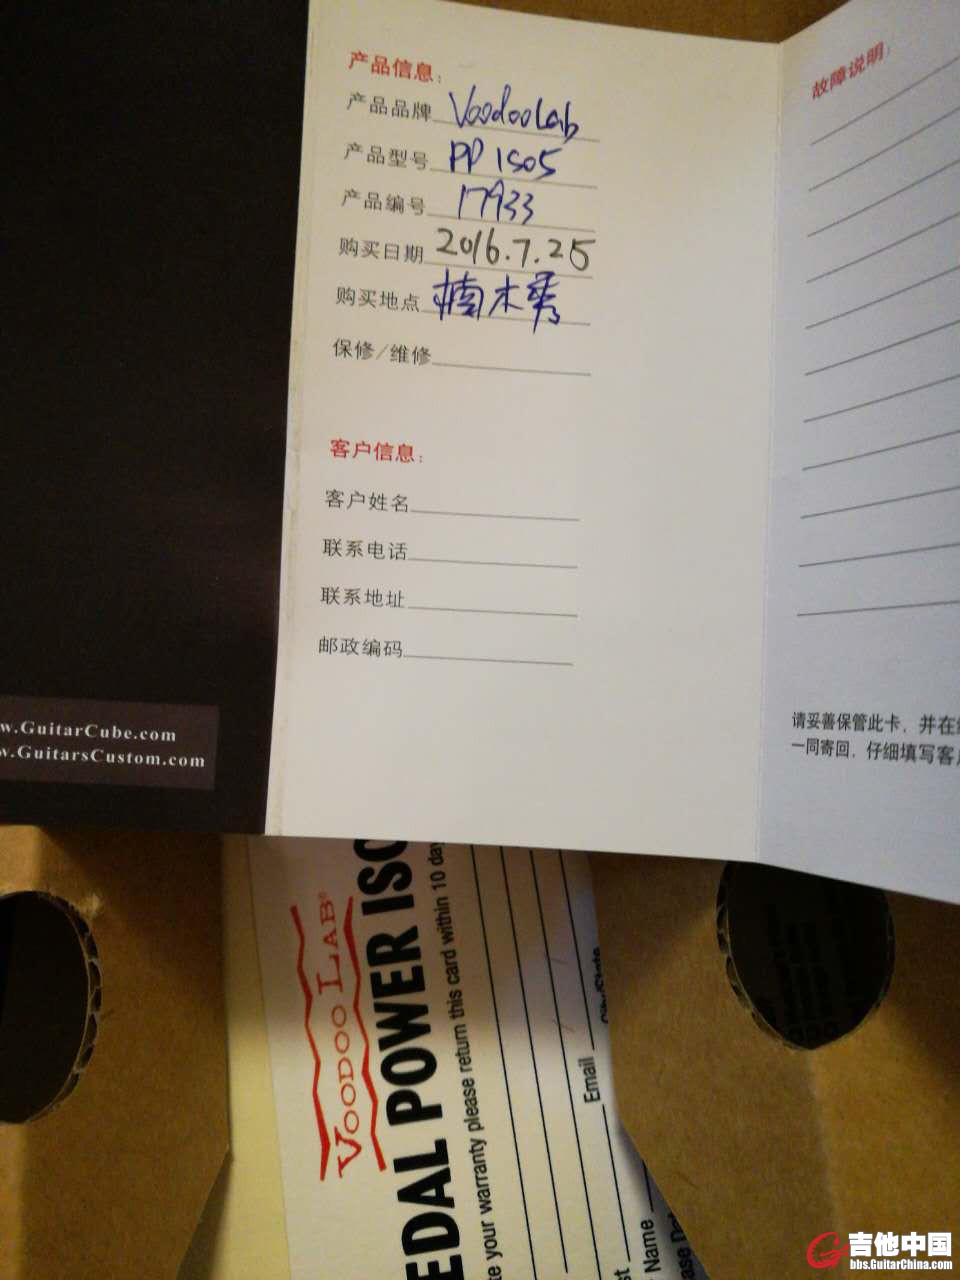 产品信息：
产品品牌 VoodooLab
产品型号 PP ISO5
产品编号 17933
购买日期 2016.7.25
购买地点 楠木秀
保修/维修
客户信息：
客户姓名
联系电话
联系地址
邮政编码
故障说明：
请妥善保管此卡，并在
一同寄回，仔细填写客
w.GuitarCube.com
w.GuitarsCustom.com
VOODOO LAB®
EDAL POWER ISO
te your warranty please return this card within 10 day
City/State
Email
st
Name
ase Da
吉他中国
bbs.GuitarChina.com